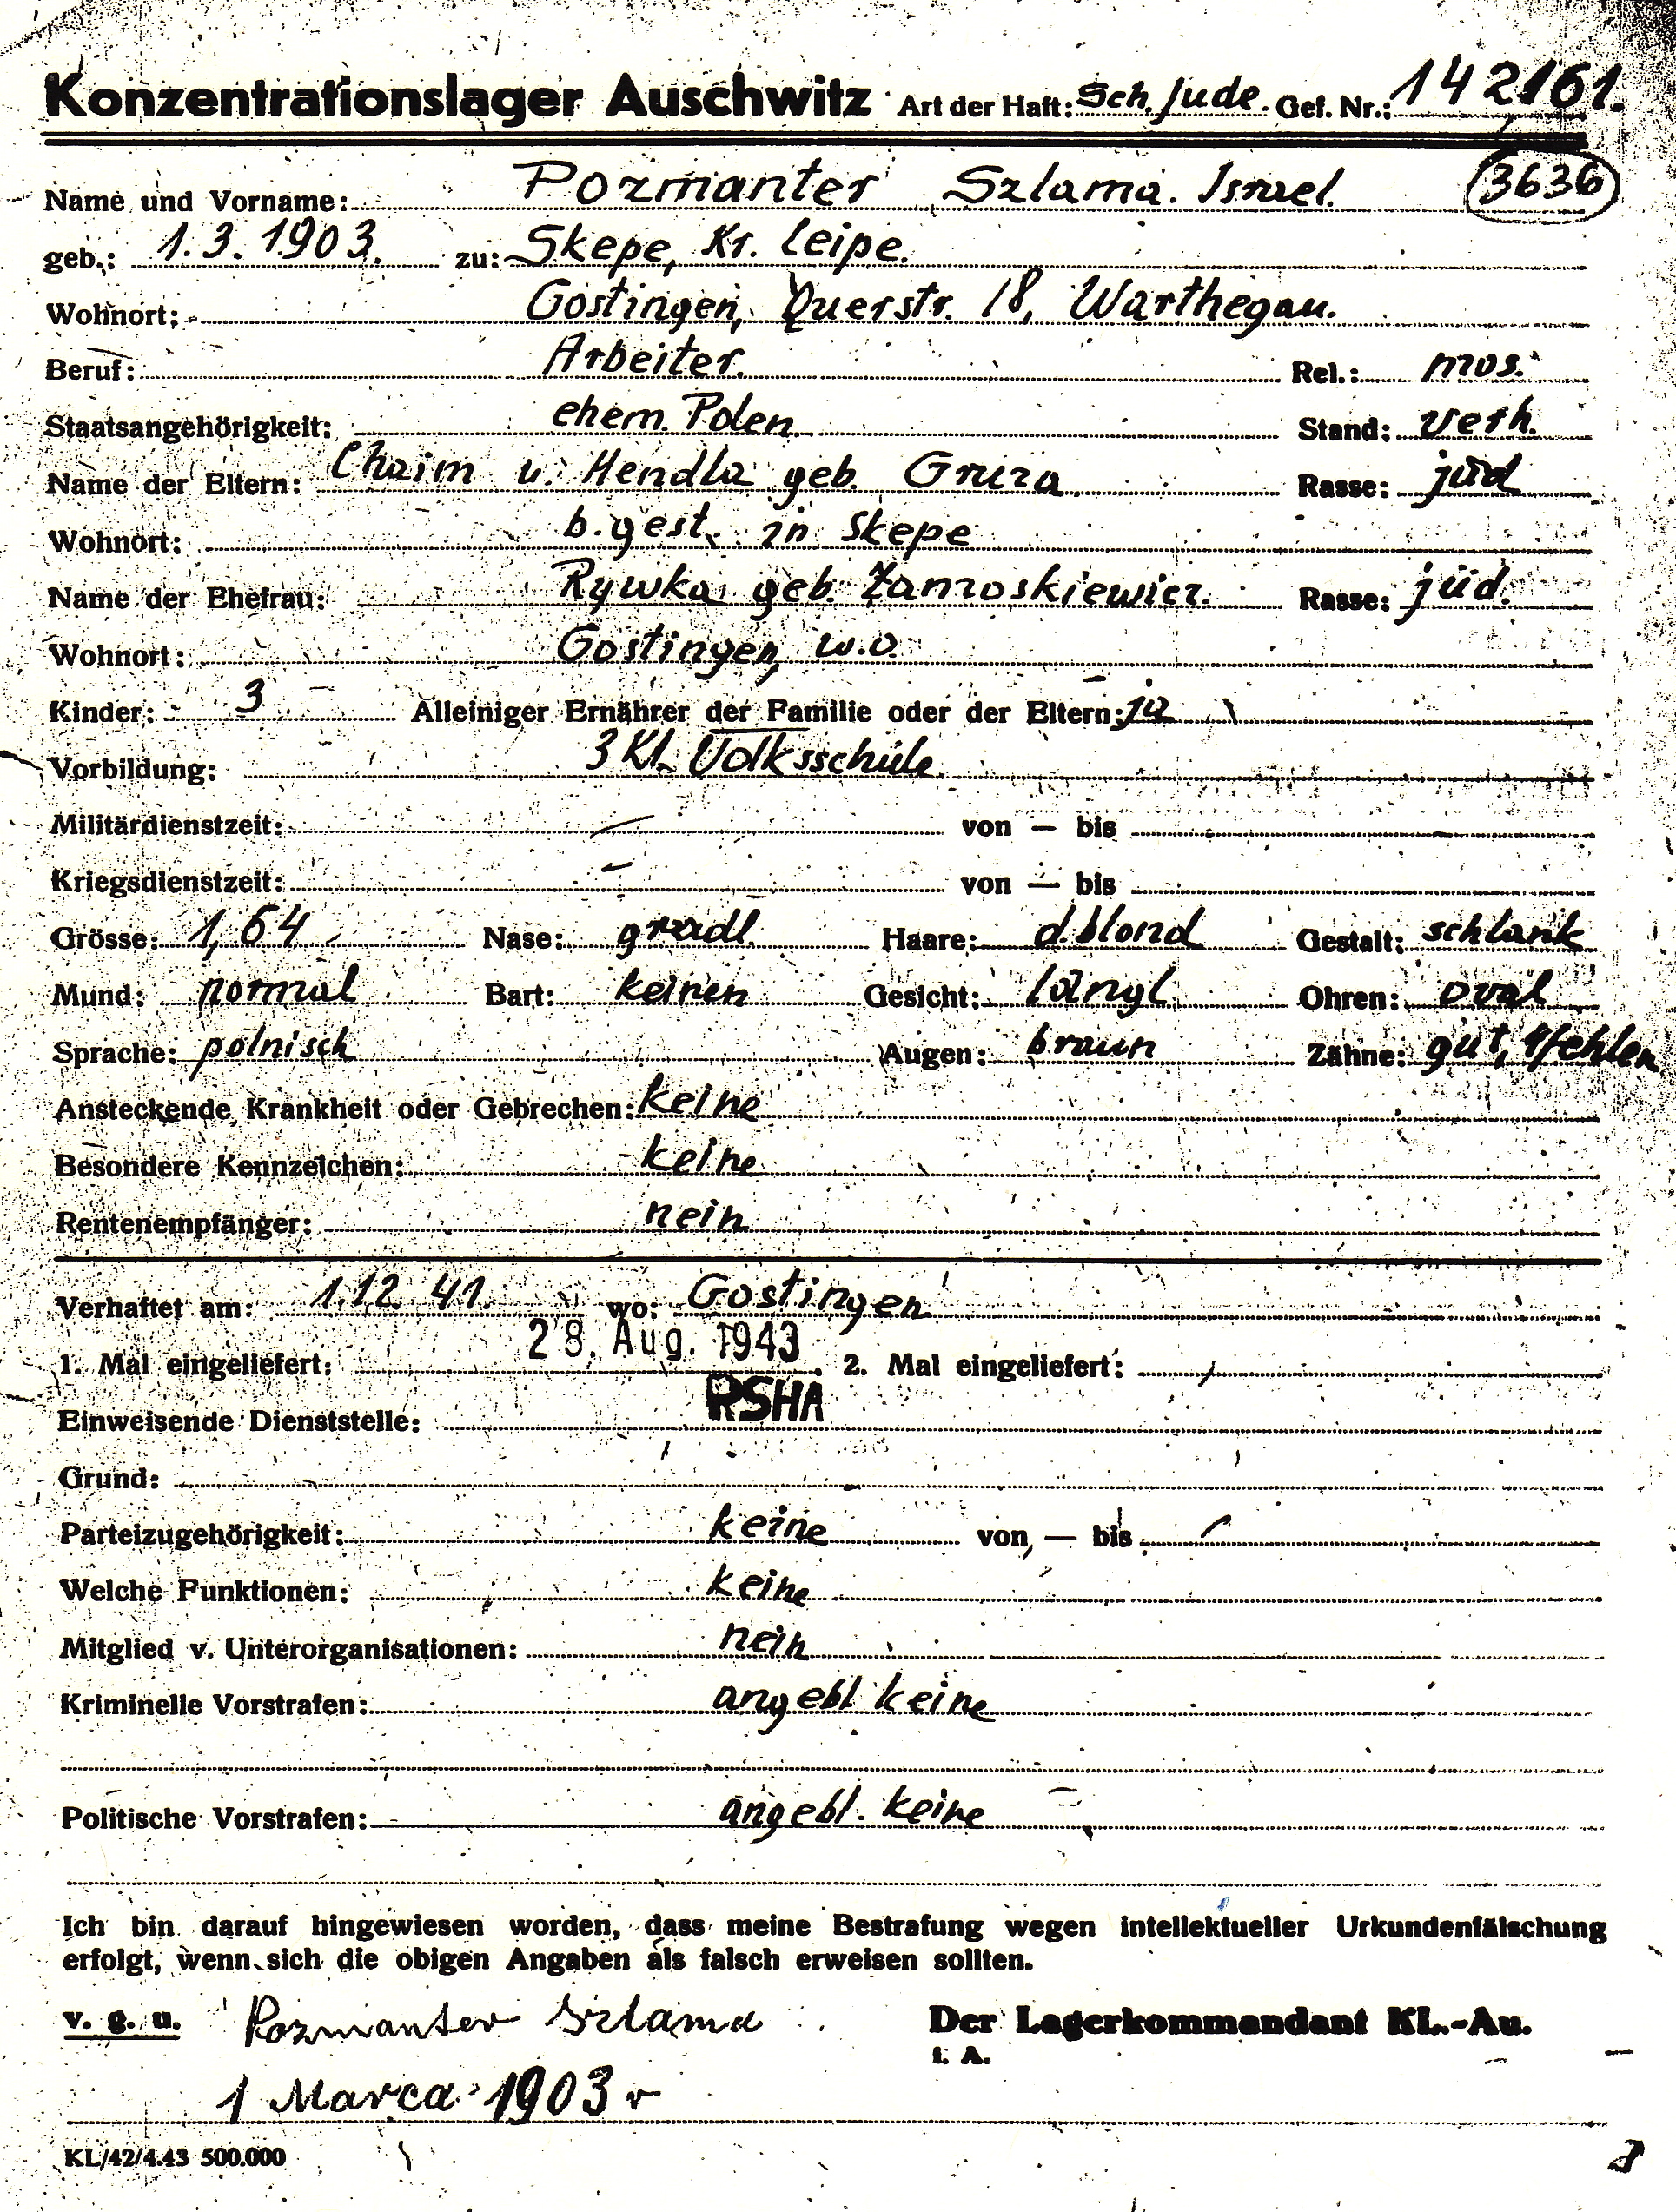 Konzentrationslager Auschwitz Art der Haft: Sch. Jude. Gef. Nr.: 142161.
3636
Name und Vorname: Pozmanter Szlama. Israel.
geb.: 1.3.1903. zu: Skepe, Kr. Leipe.
Wohnort: Gostingen, Querstr. 18, Warthegau.
Beruf: Arbeiter. Rel.: mos.
Staatsangehörigkeit: ehem. Polen Stand: verh.
Name der Eltern: Chaim u. Hendla geb. Gruza Rasse: jüd
Wohnort: b. gest. in Skepe
Name der Ehefrau: Rywka geb. Zamoskiewicz. Rasse: jüd.
Wohnort: Gostingen, w.o.
Kinder: 3 Alleiniger Ernährer der Familie oder der Eltern: ja
Vorbildung: 3 Kl. Volksschule
Militärdienstzeit: — von — bis
Kriegsdienstzeit: — von — bis
Grösse: 1,64 Nase: gradl. Haare: d.blond Gestalt: schlank
Mund: normal Bart: keinen Gesicht: längl. Ohren: oval
Sprache: polnisch Augen: braun Zähne: gut, fehlen
Ansteckende Krankheit oder Gebrechen: keine
Besondere Kennzeichen: keine
Rentenempfänger: nein
Verhaftet am: 1.12.41. wo: Gostingen
1. Mal eingeliefert: 28. Aug. 1943 2. Mal eingeliefert:
Einweisende Dienststelle: RSHA
Grund:
Parteizugehörigkeit: keine von — bis
Welche Funktionen: keine
Mitglied v. Unterorganisationen: nein
Kriminelle Vorstrafen: angebl keine
Politische Vorstrafen: angebl. keine
Ich bin darauf hingewiesen worden, dass meine Bestrafung wegen intellektueller Urkundenfälschung
erfolgt, wenn sich die obigen Angaben als falsch erweisen sollten.
v. g. u. Pozmanter Szlama Der Lagerkommandant KL.-Au.
i. A.
1 Marca 1903 r
KL/42/4.43 500.000